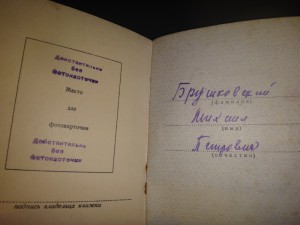 Действительно
без
Фотокарточки
Место
для
фотокарточки
Действительно
без
Фотокарточки
подпись владельца книжки
Брушковский
(фамилия)
Михаил
(имя)
Петрович
(отчество)